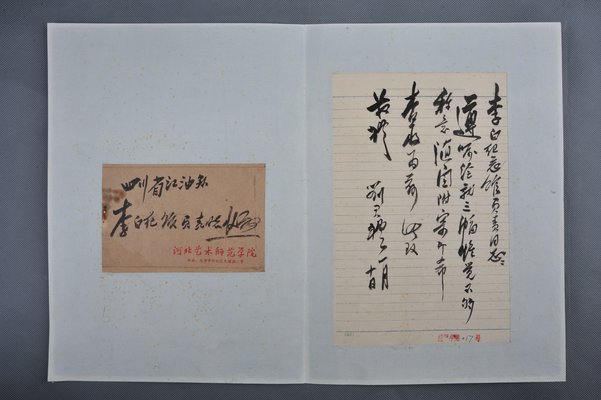 四川省江油县
李白纪念馆负责同志
河北艺术师范学院
李白纪念馆负责同志
遵嘱绘就三幅惟觉不够
称意随函附寄予希
查收 此致
敬礼
刘 一月
十日